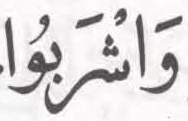 وَاشْرَبُوا